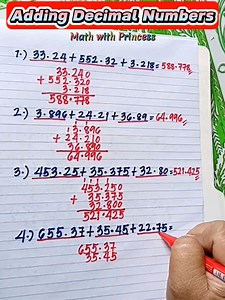 Adding Decimal Numbers
Math with Princess
1.) 33.24 + 552.32 + 3.218 = 588.778
33.240
+ 552.320
3.218
588.778
2.) 3.896 + 24.21 + 36.89 = 64.996
1 1
3.896
+ 24.210
36.890
64.996
3.) 453.25 + 35.375 + 32.80 = 521.425
1 1 1
453.250
+ 35.375
32.800
521.425
4.) 655.37 + 35.45 + 22.75 =
655.37
35.45